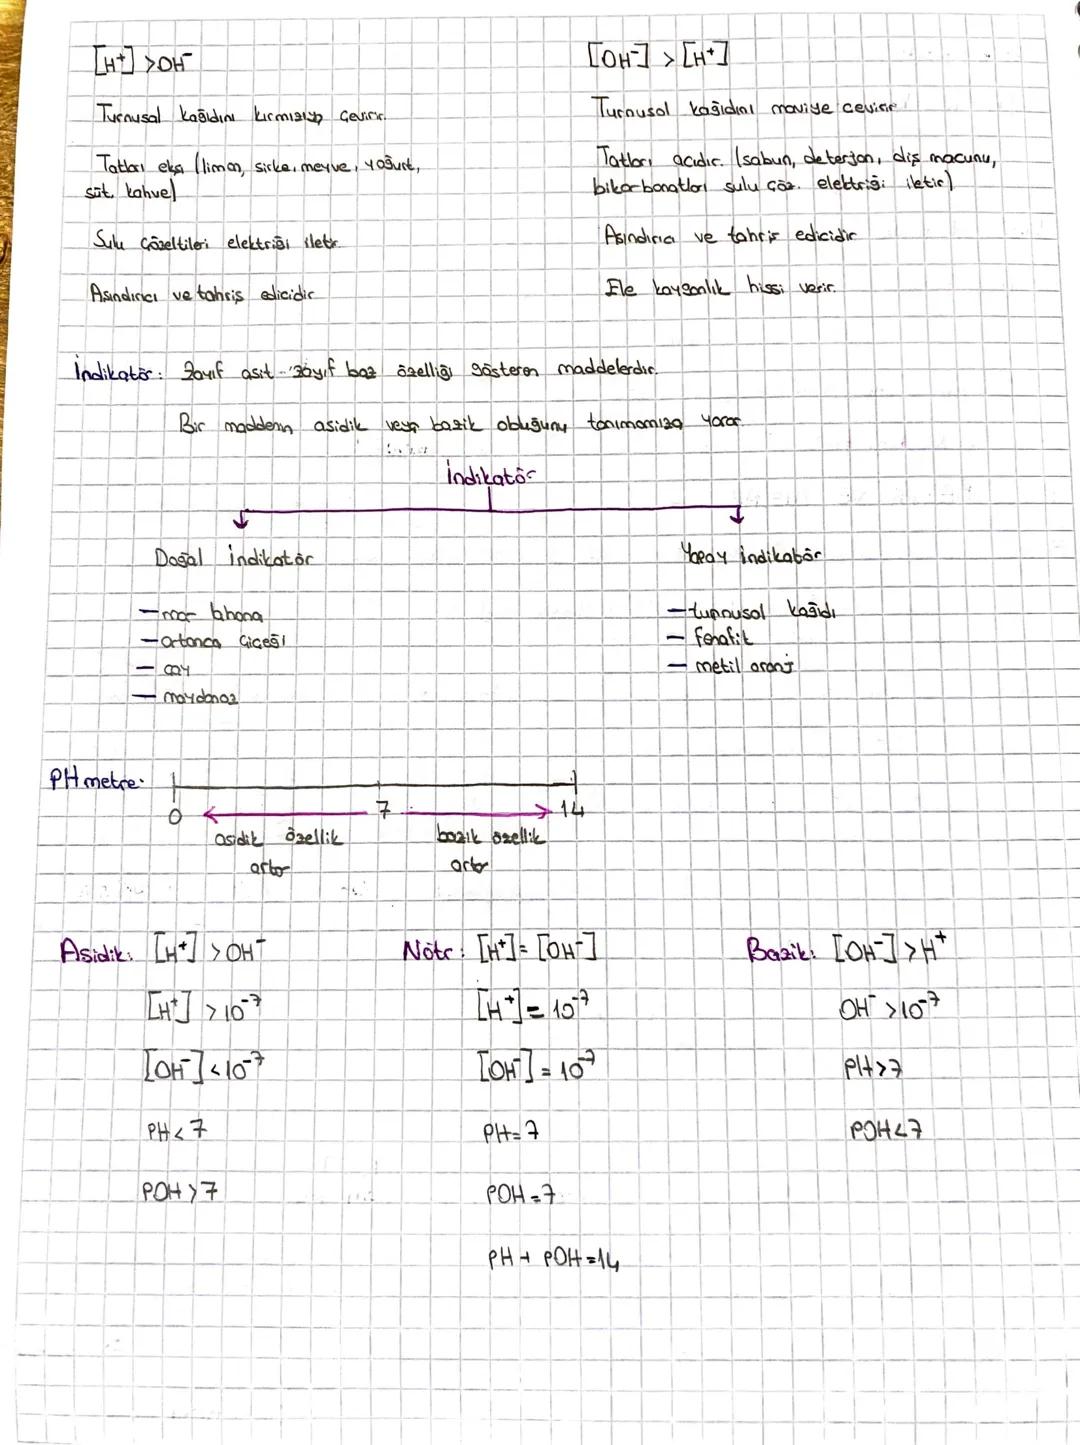 [H⁺] > OH⁻
Turnusol kağıdını kırmızıya çevirir.
Tatları ekşi (limon, sirke, meyve, yoğurt,
süt, kahve)
Sulu çözeltileri elektriği iletir.
Aşındırıcı ve tahriş edicidir
[OH⁻] > [H⁺]
Turnusol kağıdını maviye çevirir.
Tatları acıdır. (sabun, deterjan, diş macunu,
bikarbonatları sulu çöz. elektriği iletir)
Aşındırıcı ve tahriş edicidir
Ele kayganlık hissi verir.
İndikatör: Zayıf asit - zayıf baz özelliği gösteren maddelerdir.
Bir maddenin asidik veya bazik olduğunu tanımamıza yarar.
İndikatör
Doğal indikatör
Yapay indikatör
— mor lahana
— ortanca çiçeği
— çay
— maydanoz
— turnusol kağıdı
— fenafit
— metil oranj
PH metre:
0 7 14
asidik özellik
artar
bazik özellik
artar
Asidik: [H⁺] > OH⁻
[H⁺] > 10⁻⁷
[OH⁻] < 10⁻⁷
PH < 7
POH > 7
Nötr: [H⁺] = [OH⁻]
[H⁺] = 10⁻⁷
[OH⁻] = 10⁻⁷
PH = 7
POH = 7
PH + POH = 14
Bazik: [OH⁻] > H⁺
OH⁻ > 10⁻⁷
PH > 7
POH < 7